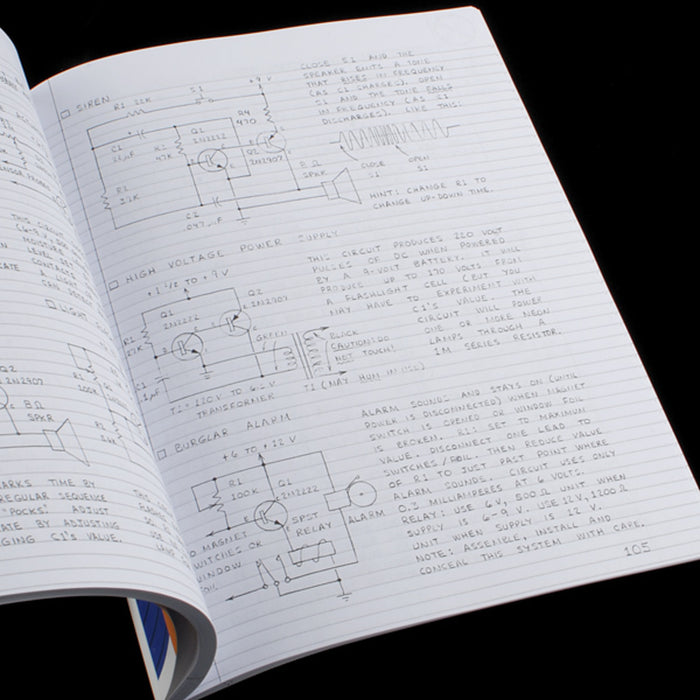 SIREN
R1 22K
S1
+9V
R4
470
C1
R2
47K
Q1
2N2222
Q2
2N2907
8Ω
SPKR
C2
CLOSE S1 AND THE
SPEAKER EMITS A TONE
THAT RISES IN FREQUENCY
(AS C1 CHARGES). OPEN
S1 AND THE TONE FALLS
IN FREQUENCY (AS C1
DISCHARGES). LIKE THIS:
CLOSE
S1
OPEN
S1
HINT: CHANGE R1 TO
CHANGE UP-DOWN TIME.
HIGH VOLTAGE POWER SUPPLY
+1 1/2 TO +9V
Q1
2N2222
Q2
2N2907
R1
27K
C1
GREEN
BLACK
CAUTION: DO
NOT TOUCH!
T1 (MAY HUM IN USE)
TRANSFORMER
THIS CIRCUIT PRODUCES 220 VOLT
PULSES OF DC WHEN POWERED
BY A 9-VOLT BATTERY. IT WILL
PRODUCE UP TO 170 VOLTS FROM
A FLASHLIGHT CELL (BUT YOU
MAY HAVE TO EXPERIMENT WITH
C1'S VALUE. THE
CIRCUIT WILL POWER
ONE OR MORE NEON
LAMPS THROUGH A
1M SERIES RESISTOR.
BURGLAR ALARM
+6 TO +12 V
R1
100K
Q1
2N2222
SPST
RELAY
ALARM
TO MAGNET
SWITCHES OR
WINDOW
FOIL
ALARM SOUNDS AND STAYS ON (UNTIL
POWER IS DISCONNECTED) WHEN MAGNET
SWITCH IS OPENED OR WINDOW FOIL
IS BROKEN. R1: SET TO MAXIMUM
VALUE. DISCONNECT ONE LEAD TO
SWITCHES/FOIL. THEN REDUCE VALUE
OF R1 TO JUST PAST POINT WHERE
ALARM SOUNDS. CIRCUIT USES ONLY
0.3 MILLIAMPERES AT 6 VOLTS.
RELAY: USE 6V, 500Ω UNIT WHEN
SUPPLY IS 6-9 V. USE 12V, 1200Ω
UNIT WHEN SUPPLY IS 12 V.
NOTE: ASSEMBLE, INSTALL AND
CONCEAL THIS SYSTEM WITH CARE.
105
Q2
2N2907
8Ω
SPKR
R1
100K
MARKS TIME BY
REGULAR SEQUENCE
"POCKS". ADJUST
RATE BY ADJUSTING
C1'S VALUE.